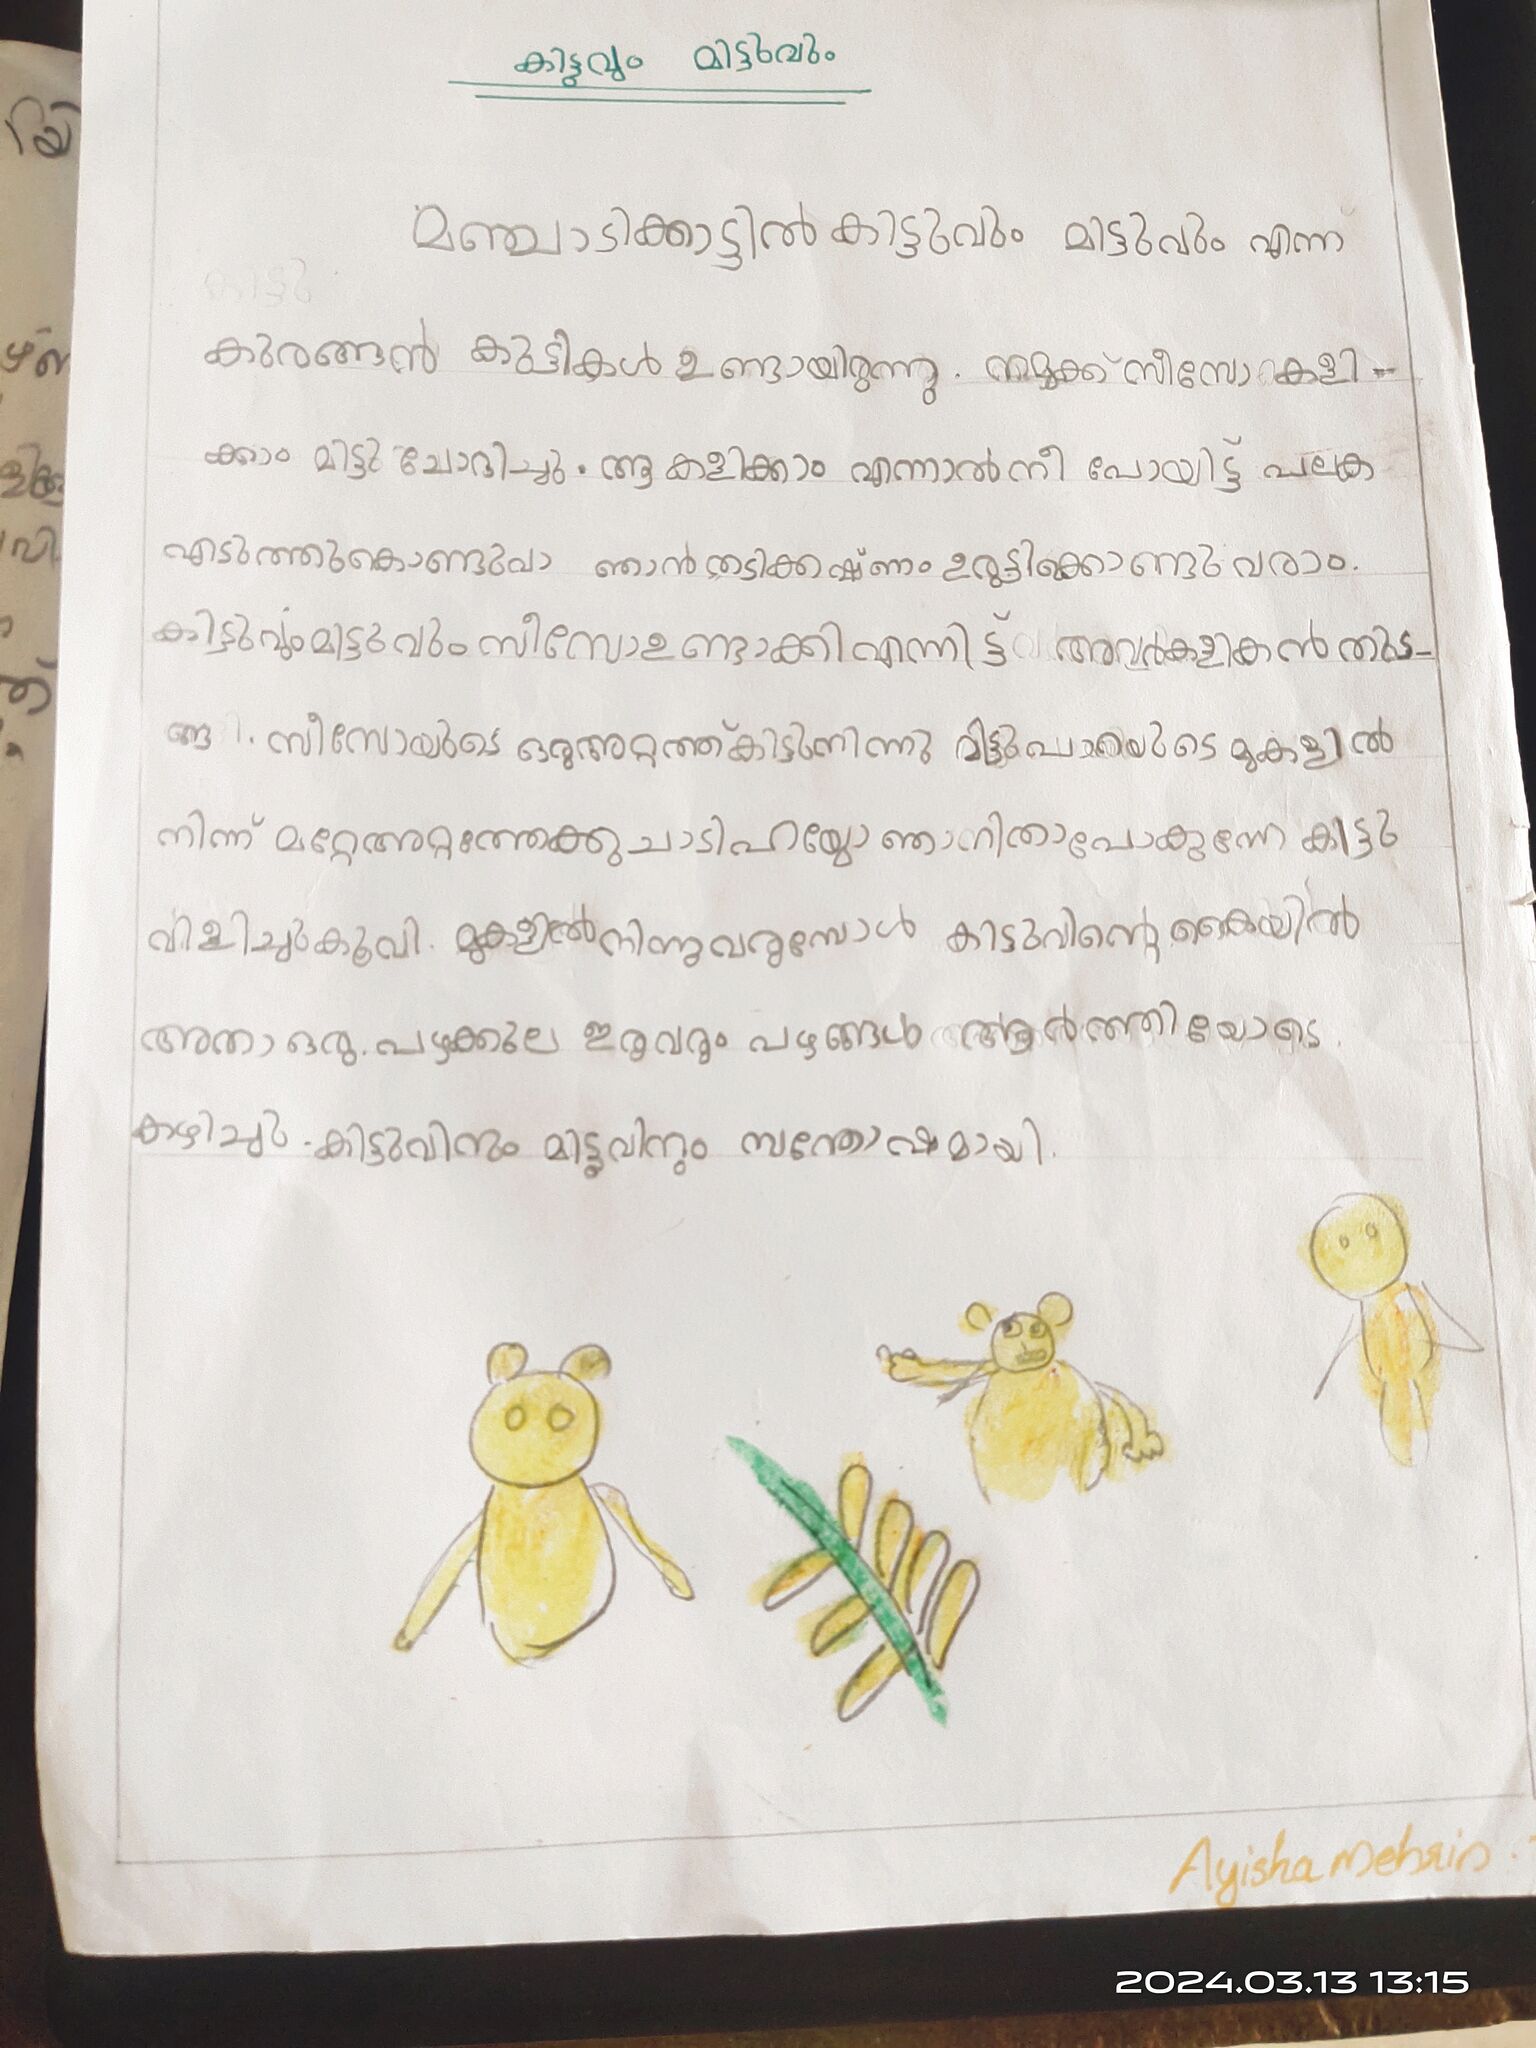 കിട്ടുവും മിട്ടുവും
മഞ്ചാടിക്കാട്ടിൽ കിട്ടുവും മിട്ടുവും എന്ന
കുരങ്ങൻ കുട്ടികൾ ഉണ്ടായിരുന്നു. നമുക്ക് സീസോ കളി-
ക്കാം മിട്ടു ചോദിച്ചു. ആ കളിക്കാം എന്നാൽ നീ പോയിട്ട് പലക
എടുത്തുകൊണ്ടുവാ ഞാൻ തടിക്കഷ്ണം ഉരുട്ടിക്കൊണ്ടു വരാം.
കിട്ടുവും മിട്ടുവും സീസോ ഉണ്ടാക്കി എന്നിട്ട് അവർ കളികൻ തുട-
ങ്ങി. സീസോയുടെ ഒരു അറ്റത്ത് കിട്ടു നിന്നു മിട്ടു പാറയുടെ മുകളിൽ
നിന്ന് മറ്റേ അറ്റത്തേക്കു ചാടി ഹയ്യോ ഞാനിതാ പോകുന്നേ കിട്ടു
വിളിച്ചു കൂവി. മുകളിൽ നിന്നു വരുമ്പോൾ കിട്ടുവിന്റെ കൈയിൽ
അതാ ഒരു. പഴക്കുല ഇരുവരും പഴങ്ങൾ ആർത്തിയോടെ
കഴിച്ചു. കിട്ടുവിനും മിട്ടുവിനും സന്തോഷമായി.
Ayisha Mehrin.
2024.03.13 13:15